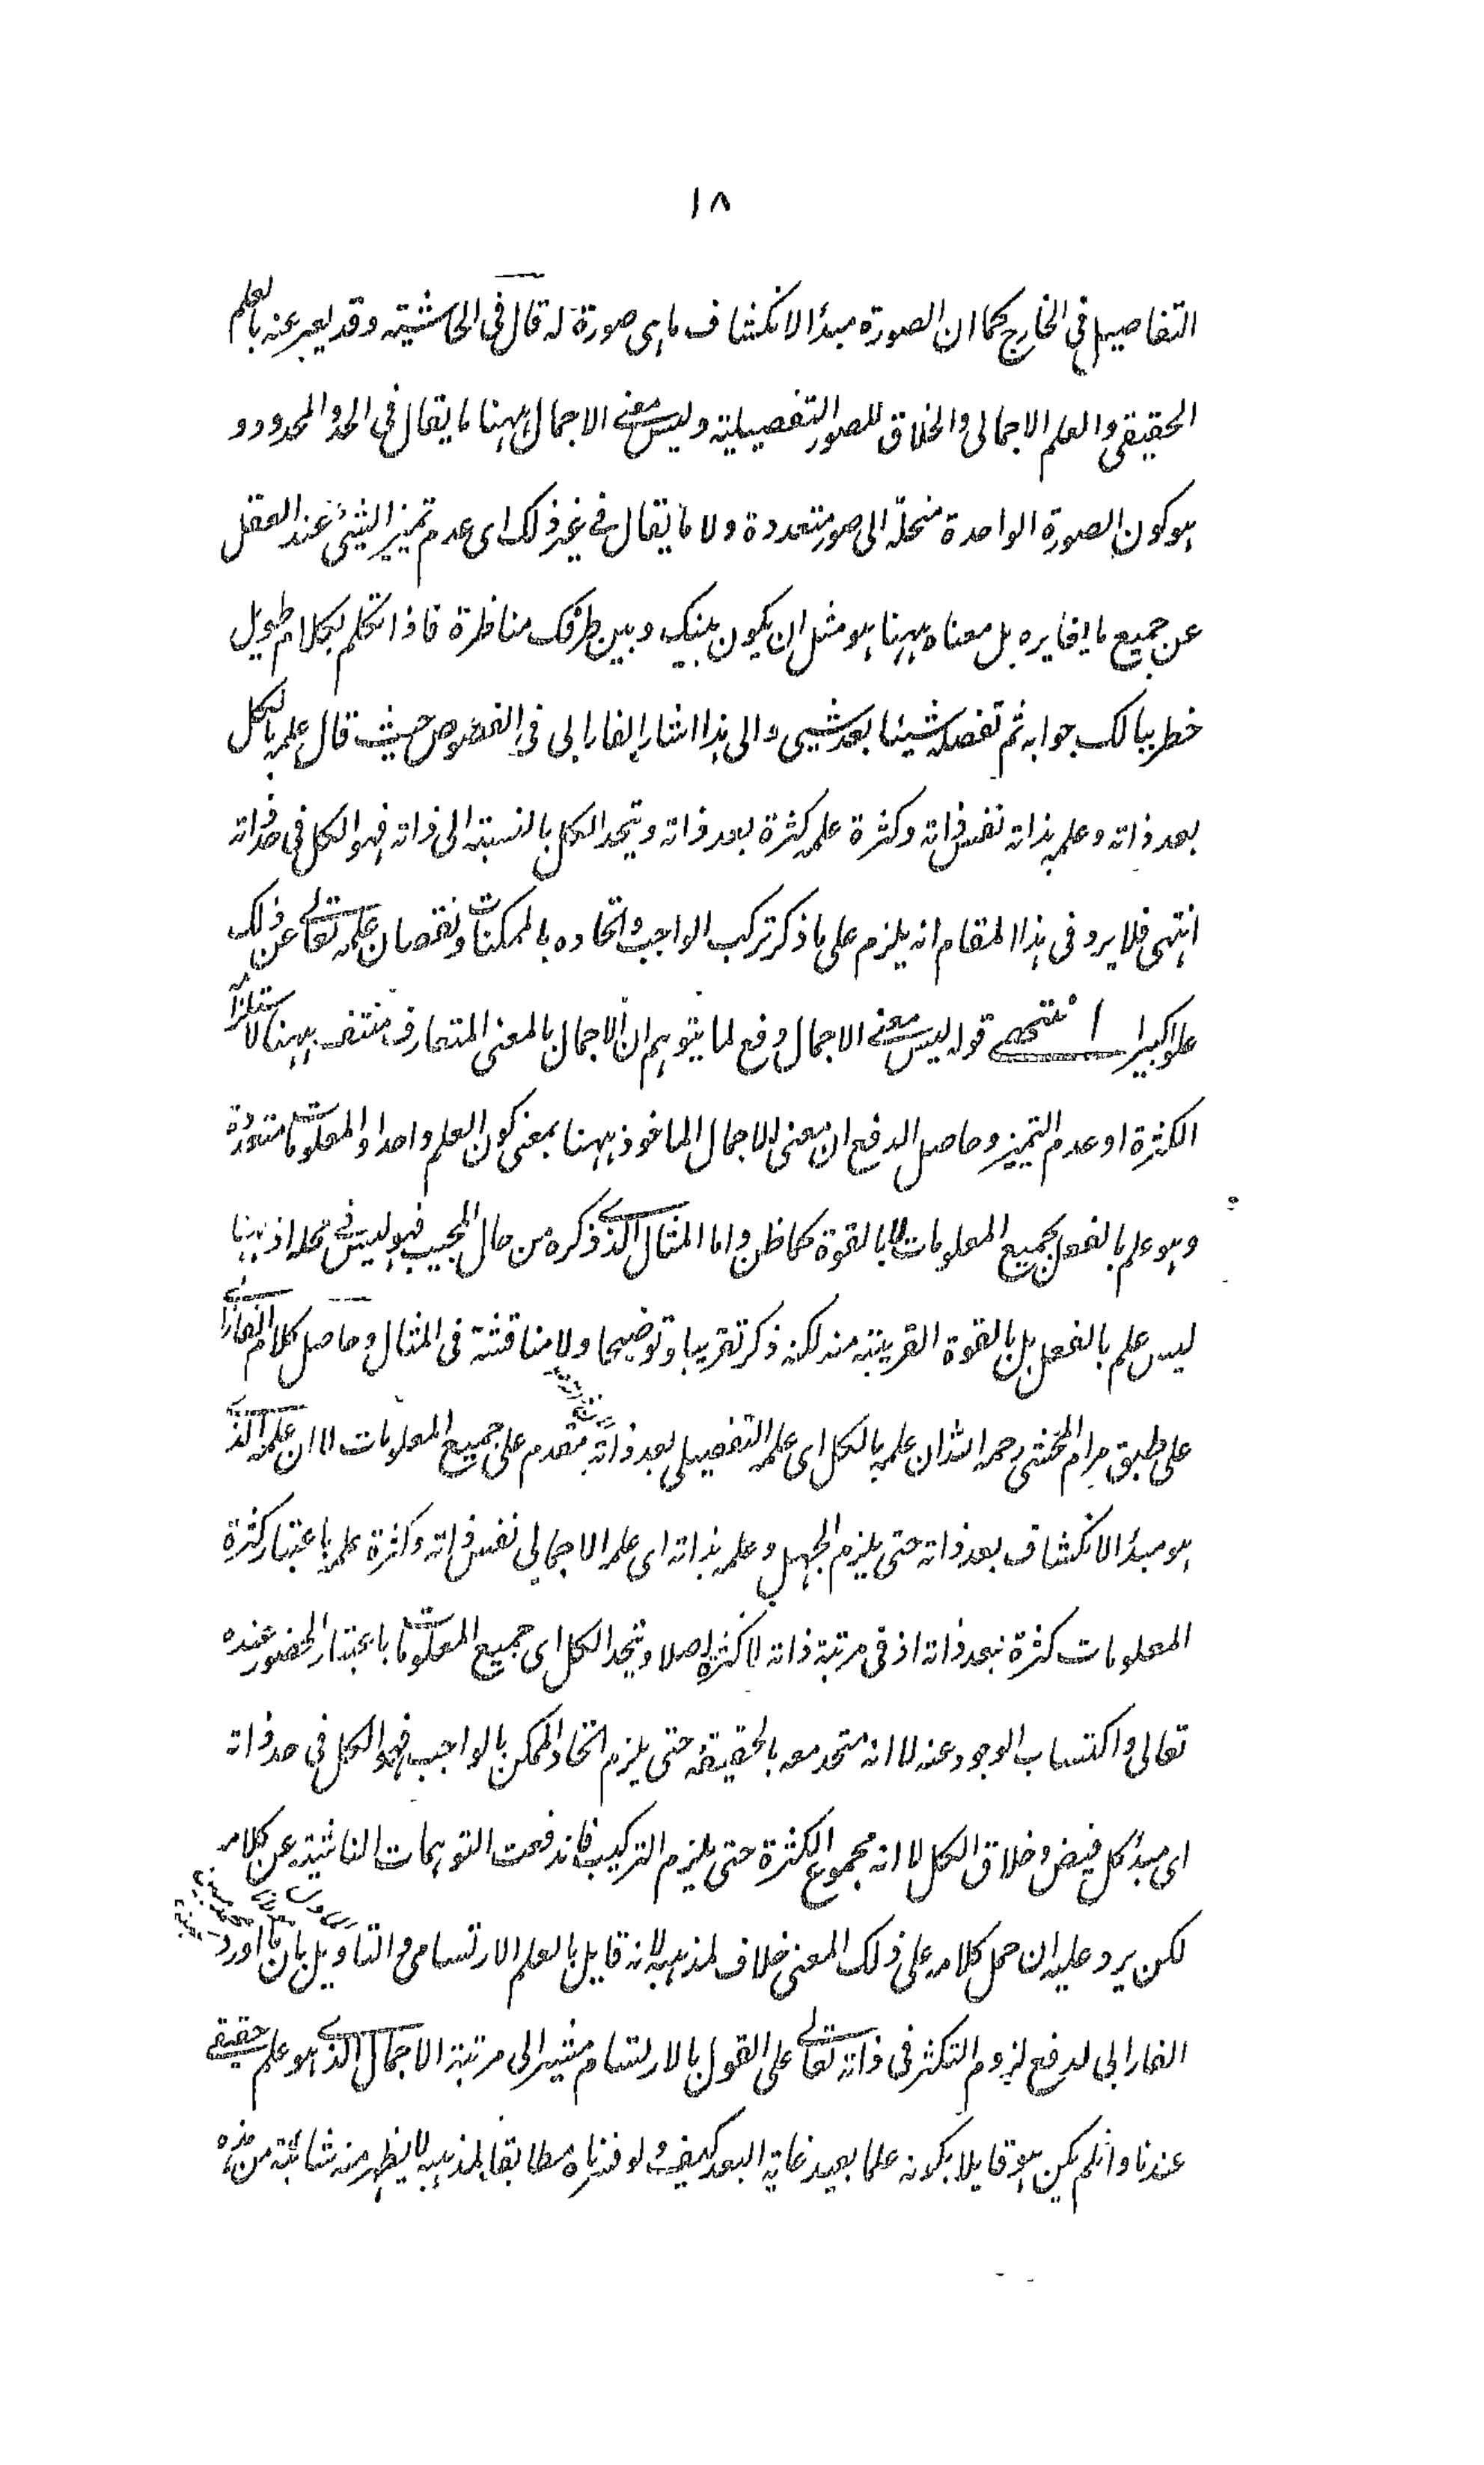 ١٨
التفاصيل فى الخارج كما ان الصورة مبدأ الانكشاف ما هى صورة له قال فى الحاشية وقد يعبر عنه بالعلم
الحقيقى والعلم الاجمالى والخلاق للصور التفصيلية وليس معنى الاجمال ههنا ما يقال فى الحد والمحدود و
هو كون الصورة الواحدة منحلة الى صور متعددة ولا ما يقال فى غير ذلك اى عدم تميز الشئ عند العقل
عن جميع ما يغايره بل معناه ههنا هو مثل ان يكون بينك وبين طرفك مناظرة فاذا تكلم بكلام طويل
خطر ببالك جوابه ثم تفصله شيئا بعد شيى والى هذا اشار الفارابى فى الفصوص حيث قال علمه بالكل
بعد ذاته وعلمه بذاته نفس ذاته وكثرة علمه كثرة بعد ذاته ويتحد الكل بالنسبة الى ذاته فهو الكل فى حد ذاته
انتهى فلا يرد فى هذا المقام انه يلزم على ما ذكر تركب الواجب واتحاده بالممكنات ونقصان علمه تعالى عن ذلك
علوا كبيرا انتهى قوله ليس معنى الاجمال دفع لما يتوهم ان الاجمال بالمعنى المتعارف منتف ههنا لاستلزامه
الكثرة او عدم التميز وحاصل الدفع ان معنى الاجمال الماخوذ ههنا بمعنى كون العلم واحدا والمعلومات متعددة
وهو علم بالفعل بجميع المعلومات لا بالقوة كما ظن واما المثال الذى ذكره من حال المجيب فهو ليس فى محله اذ ههنا
ليس علم بالفعل بل بالقوة القريبة منه لكنه ذكر تقريبا وتوضيحا ولا مناقشة فى المثال وحاصل كلام الفارابى
على طبق مرام المحشى رحمه الله ان علمه بالكل اى علمه التفصيلى بعد ذاته متقدم على جميع المعلومات لا ان علمه الذى
هو مبدأ الانكشاف بعد ذاته حتى يلزم الجهل وعلمه بذاته اى علمه الاجمالى نفس ذاته وكثرة علمه باعتبار كثرة
المعلومات كثرة بعد ذاته اذ فى مرتبة ذاته لا كثرة اصلا ويتحد الكل اى جميع المعلومات باعتبار الحضور عنده
تعالى واكتساب الوجود عنه لا انه متحد معه بالحقيقة حتى يلزم اتحاد الممكن بالواجب فهو الكل فى حد ذاته
اى مبدأ كل فيض وخلاق الكل لا انه مجموع الكثرة حتى يلزم التركيب فاندفعت التوهمات الناشية عن كلامه
لكن يرد عليه ان حمل كلامه على ذلك المعنى خلاف لمذهبه لانه قايل بالعلم الارتسامى والتاويل بان ما اورد
الفارابى لدفع لزوم التكثر فى ذاته تعالى على القول بالارتسام مشير الى مرتبة الاجمال الذى هو علم حقيقى
عندنا وانلم يكن هو قايلا بكونه علما بعيد غاية البعد كيف ولو فسرناه مطابقا لمذهبه لا يظهر منه شائبة من هذه